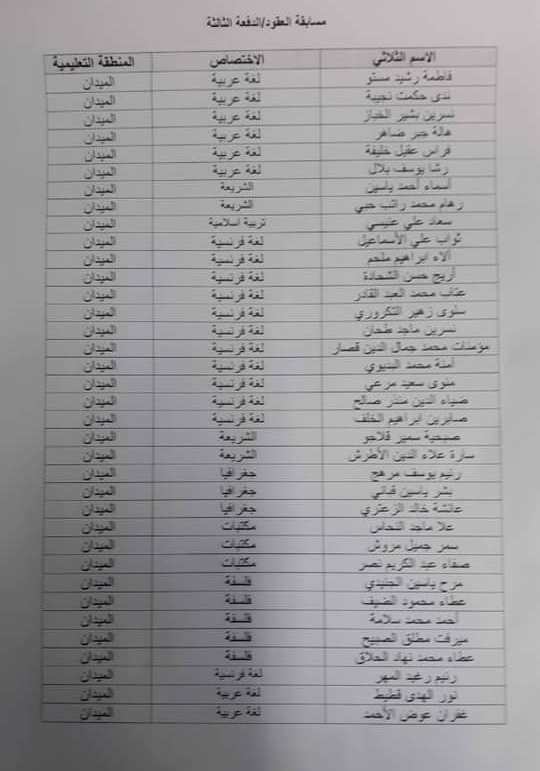 مسابقة العقود/الدفعة الثالثة
الاسم الثلاثي الاختصاص المنطقة التعليمية
فاطمة رشيد مستو لغة عربية الميدان
ندى حكمت نجيبة لغة عربية الميدان
نسرين بشير الخباز لغة عربية الميدان
هالة جبر ضاهر لغة عربية الميدان
فراس عقيل خليفة لغة عربية الميدان
رشا يوسف بلال لغة عربية الميدان
أسماء أحمد ياسين الشريعة الميدان
رهام محمد راتب حبي الشريعة الميدان
سعاد علي عتيبي تربية اسلامية الميدان
ثواب علي الأسماعيل لغة فرنسية الميدان
آلاء ابراهيم ملحم لغة فرنسية الميدان
أريج حسن الشحادة لغة فرنسية الميدان
عتاب محمد العبد القادر لغة فرنسية الميدان
سلوى زهير التكروري لغة فرنسية الميدان
نسرين ماجد طحان لغة فرنسية الميدان
مؤمنات محمد جمال الدين قصار لغة فرنسية الميدان
آمنة محمد البديوي لغة فرنسية الميدان
سعيد مرعي لغة فرنسية الميدان
ضياء الدين منذر صالح لغة فرنسية الميدان
صابرين ابراهيم الخلف لغة فرنسية الميدان
صبحية سمير قلاجو الشريعة الميدان
سارة علاء الدين الأطرش الشريعة الميدان
رنيم يوسف مرهج جغرافيا الميدان
بشر ياسين قباني جغرافيا الميدان
عائشة خالد الزعتري جغرافيا الميدان
علا ماجد النحاس مكتبات الميدان
سمر جميل مروش مكتبات الميدان
صفاء عبد الكريم نصر مكتبات الميدان
مرح ياسين الجنيدي فلسفة الميدان
عطاء محمود الضيف فلسفة الميدان
أحمد محمد سلامة فلسفة الميدان
ميرفت مطلق الصبيح فلسفة الميدان
عطاء محمد نهاد الحلاق فلسفة الميدان
رنيم رغيد المهر لغة فرنسية الميدان
نور الهدى قطيط لغة عربية الميدان
غفران عوض الأحمد لغة عربية الميدان